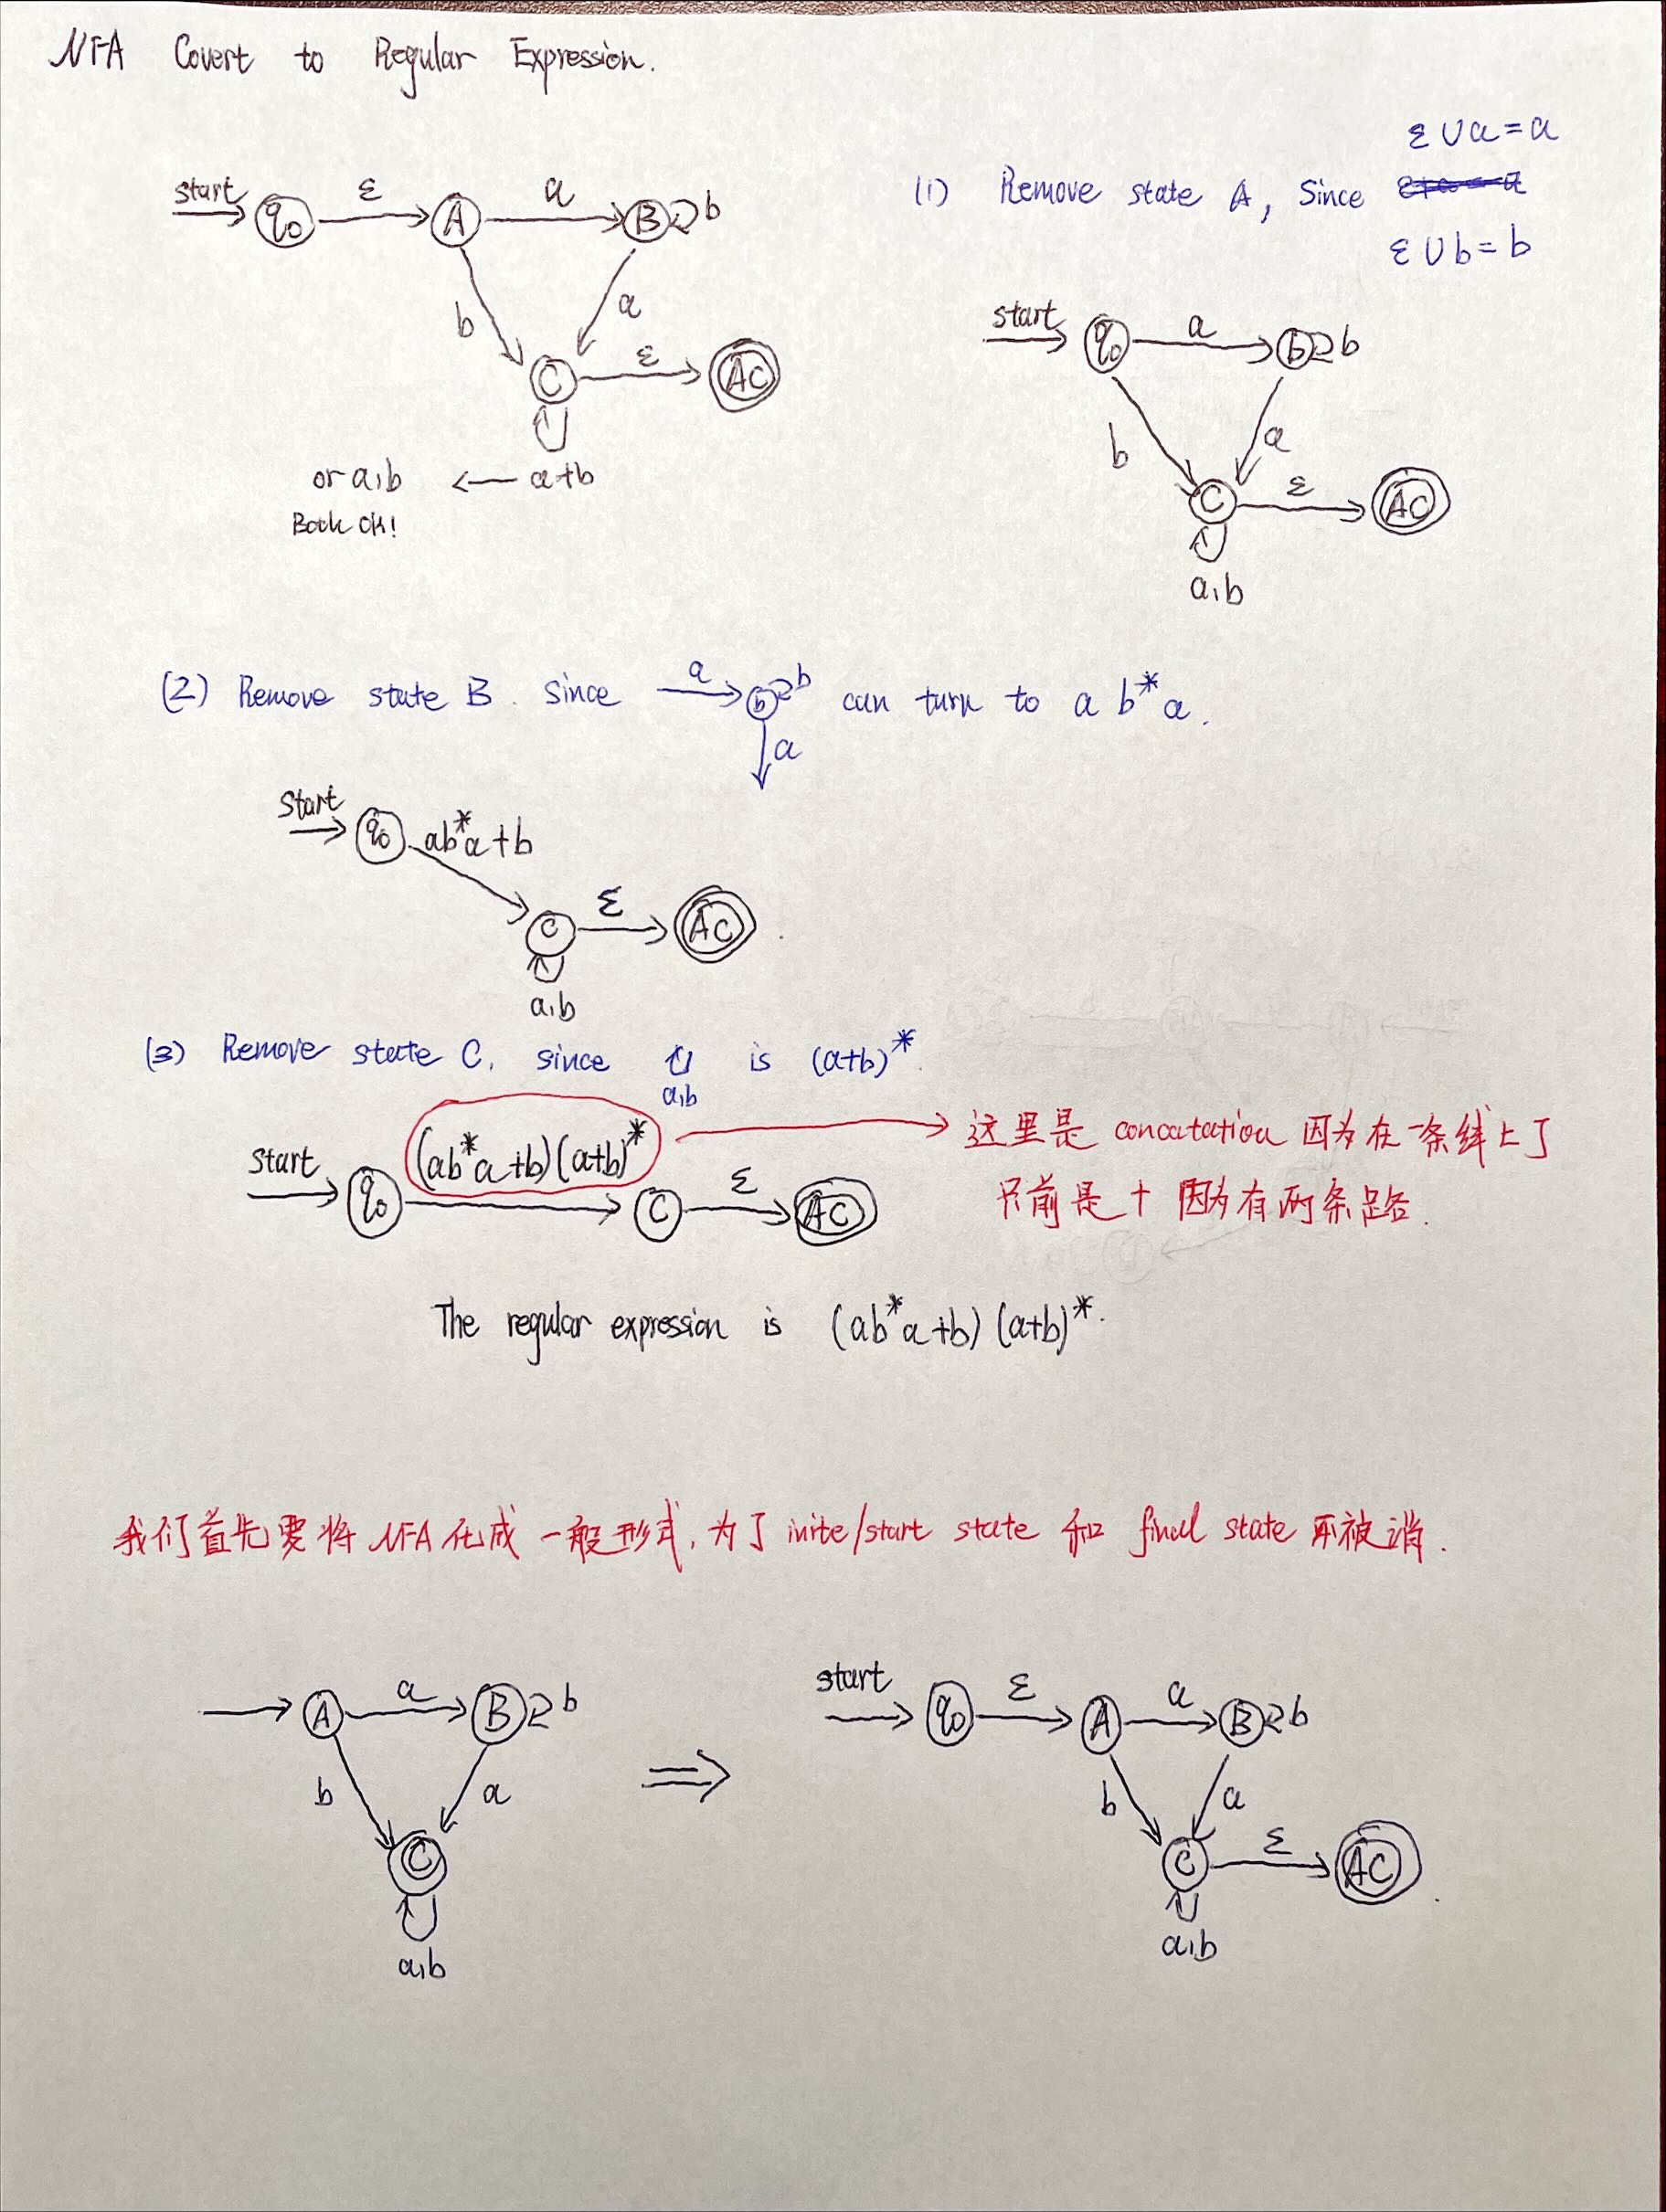 NFA Covert to Regular Expression.
start q0 ε A a B b
b a
C ε AC
or a,b ← a+b
Both OK!
ε∪a=a
(1) Remove state A, Since
ε∪b=b
start q0 a b b
b a
C ε AC
a,b
(2) Remove state B. Since a b b can turn to a b*a.
a
Start q0 ab*a+b
C ε AC
a,b
(3) Remove state C, since a,b is (a+b)*.
(ab*a+b)(a+b)* → 这里是 concatation 因为在一条线上了
只前是 + 因为有两条路.
start q0 C ε AC
The regular expression is (ab*a+b)(a+b)*.
我们首先要将 NFA 化成 一般形式, 为了 inite/start state 和 final state 不被消.
A a B b ⇒ start q0 ε A a B b
b a b a
C C ε AC
a,b a,b